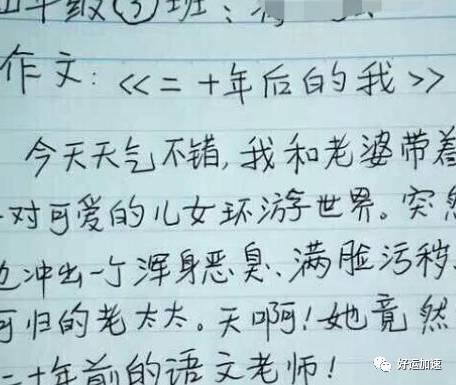 年级(3)班:
作文:《二十年后的我》
今天天气不错,我和老婆带着
对可爱的儿女环游世界。突然
冲出一个浑身恶臭、满脸污秽
可归的老太太。天啊!她竟然
二十年前的语文老师!
好运加速